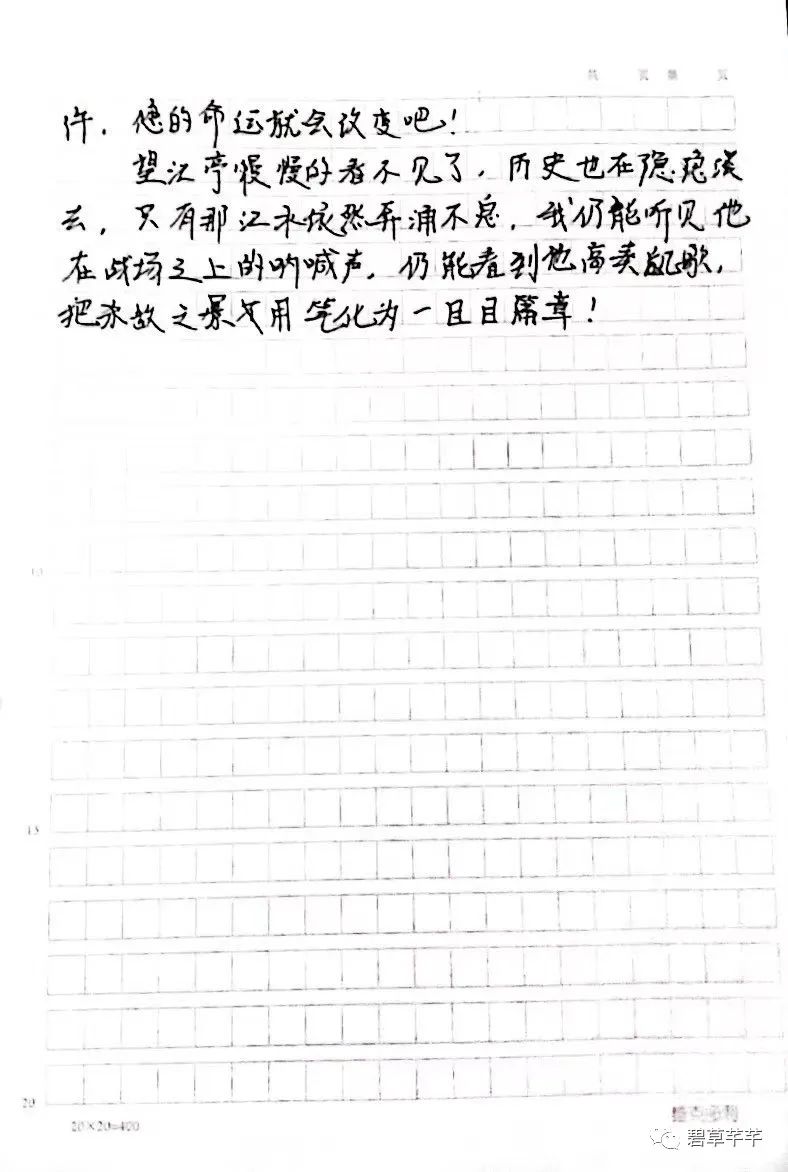 共 页 第 页
件，他的命运就会改变吧！
望江亭慢慢的看不见了，历史也在隐隐淡
去，只有那江水依然奔涌不息，我仍能听见他
在战场之上的呐喊声，仍能看到他高奏凯歌，
把杀敌之景 用笔化为一目目篇章！
15
20
20×20=400
碧草芊芊